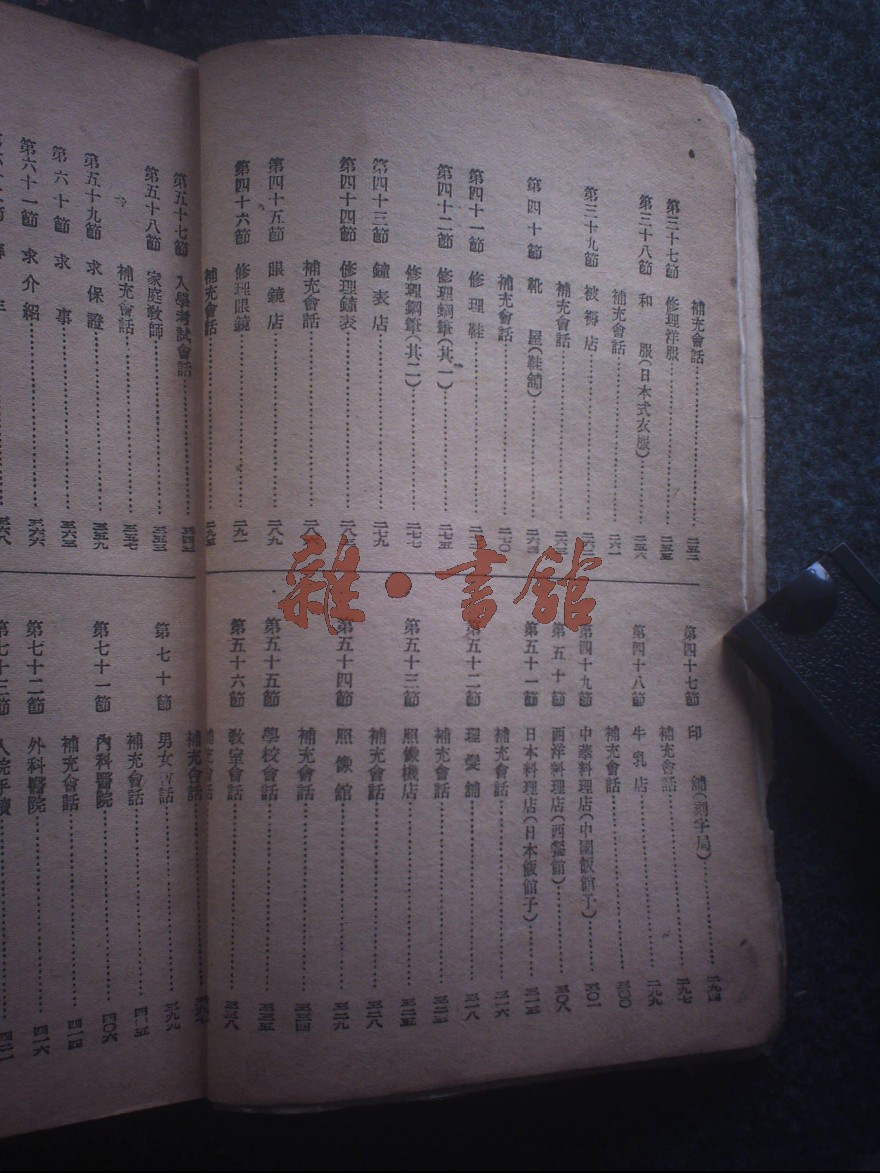 補充會話 二五二
第三十七節 修理洋服 二五五
第三十八節 和服(日本式衣服) 二五八
補充會話 二六一
第三十九節 被褥店
補充會話
第四十節 靴屋(鞋舖)
補充會話 二七〇
第四十一節 修理鞋
第四十二節 修理鋼筆(其一) 二七五
修理鋼筆(其二) 二七七
第四十三節 鐘表店 二七九
第四十四節 修理鐘表
補充會話
第四十五節 眼鏡店 二八九
第四十六節 修理眼鏡 二九一
補充會話
第四十七節 印舖(刻字局) 二九四
補充會話 二九七
第四十八節 牛乳店 二九九
補充會話 三〇〇
第四十九節 中華料理店(中國飯館子) 三〇一
第五十節 西洋料理店(西餐館) 三〇八
第五十一節 日本料理店(日本飯館子)
補充會話 三一六
第五十二節 理髮舖 三一八
補充會話
第五十三節 照像機店
補充會話 三二八
第五十四節 照像館 三二九
補充會話
第五十五節 學校會話
第五十六節 教室會話 三三八
補充會話
第五十七節 入學考試會話
第五十八節 家庭教師
補充會話
第五十九節 求保證
第六十節 求事
第六十一節 求介紹 三六六
第七十節 男女會話
補充會話
第七十一節 內科醫院 四〇六
補充會話 四一四
第七十二節 外科醫院 四一六
第七十三節 入院手續
雜·書館